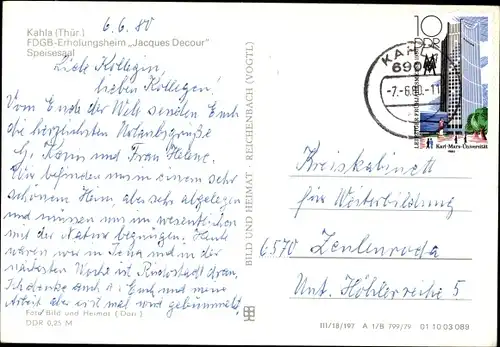 Kahla (Thür.)
FDGB-Erholungsheim „Jacques Decour"
Speisesaal
6.6.80
Liebe Kollegin,
lieben Kollegen!
Vom Ende der Welt senden Euch
die herzlichsten Urlaubsgrüße
und Frau
Wir befinden uns in einem sehr
schönen Heim, aber sehr abgelegen
und müssen uns im wesentlichen
mit der Natur begnügen. Heute
waren wir in Jena und in der
nächsten Woche ist Rudolstadt dran.
Ich denke auch an Euch und meine
Arbeit aber erst mal wird gebummelt.
Foto: Bild und Heimat (Darr)
DDR 0,25 M
BILD UND HEIMAT · REICHENBACH (VOGTL)
10
DDR
KAHLA
6906
-7.-6.80.-11
Karl-Marx-Universität
Kreiskabinett
für Weiterbildung
6570 Zeulenroda
Unt. Höhlerreihe 5
III/18/197 A 1/B 799/79 01 10 03 089